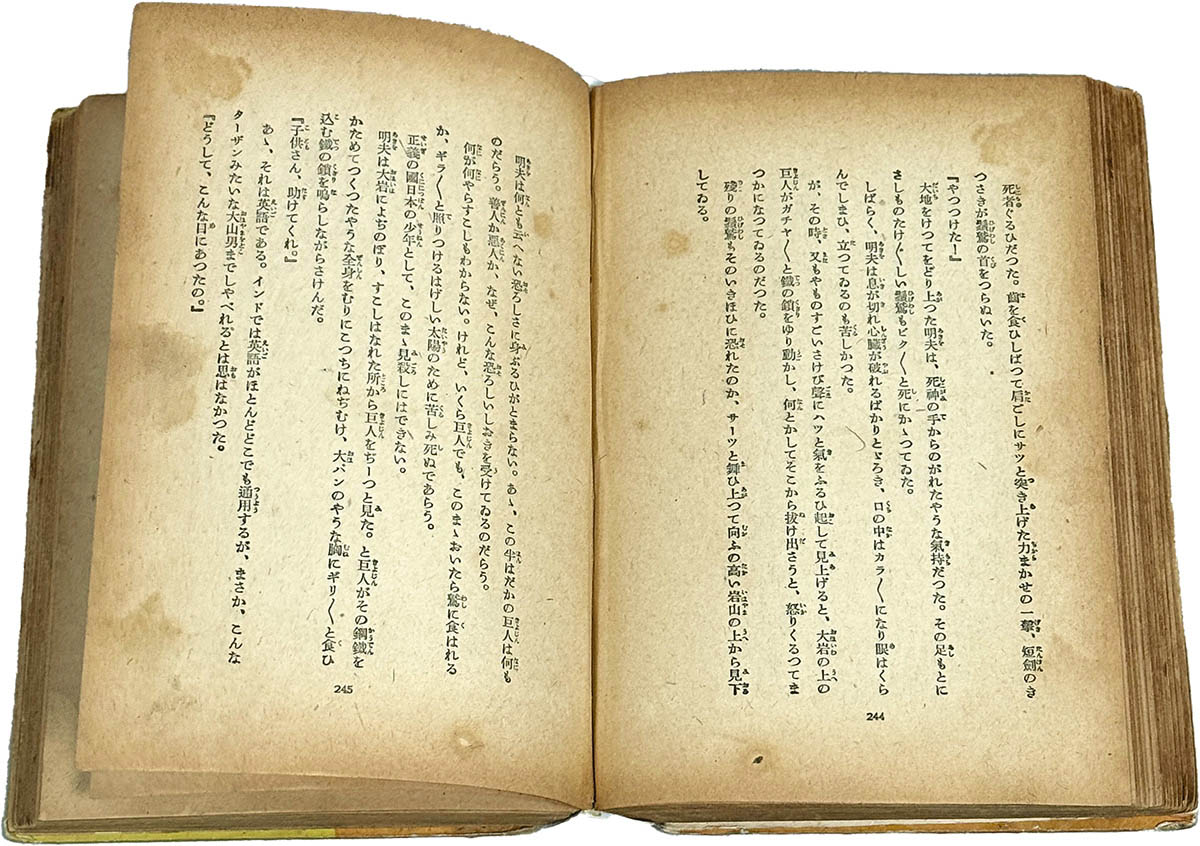 死者ぐるひだつた。齒を食ひしばつて肩ごしにサツと突き上げた力まかせの一撃、短劍のき
つさきが鬚鷲の首をつらぬいた。
『やつつけたー』
大地をけつてをどり上つた明夫は、死神の手からのがれたやうな氣持だつた。その足もとに
さしものたけ〱しい鬚鷲もピク〱と死にかゝつてゐた。
しばらく、明夫は息が切れ心臟が破れるばかりとゞろき、口の中はカラ〱になり眼はくら
んでしまひ、立つてゐるのも苦しかつた。
が、その時、又もやものすごいさけび聲にハツと氣をふるひ起して見上げると、大岩の上の
巨人がガチヤ〱と鐵の鎖をゆり動かし、何とかしてそこから拔け出さうと、怒りくるつてま
つかになつてゐるのだつた。
殘りの鬚鷲もそのいきほひに恐れたのか、サーツと舞ひ上つて向ふの高い岩山の上から見下
してゐる。
244
明夫は何とも云へない恐ろしさに身ぶるひがとまらない。あゝ、この半はだかの巨人は何も
のだらう。善人か惡人か、なぜ、こんな恐ろしいしおきを受けてゐるのだらう。
何が何やらすこしもわからない。けれど、いくら巨人でも、このまゝおいたら鷲に食はれる
か、ギラ〱と照りつけるはげしい太陽のために苦しみ死ぬであらう。
正義の國日本の少年として、このまゝ見殺しにはできない。
明夫は大岩によぢのぼり、すこしはなれた所から巨人をぢーつと見た。と巨人がその鋼鐵を
かためてつくつたやうな全身をむりにこつちにねぢむけ、大パンのやうな胸にギリ〱と食ひ
込む鐵の鎖を鳴らしながらさけんだ。
『子供さん、助けてくれ。』
あゝ、それは英語である。インドでは英語がほとんどどこでも通用するが、まさか、こんな
ターザンみたいな大山男までしやべれるとは思はなかつた。
『どうして、こんな目にあつたの。』
245